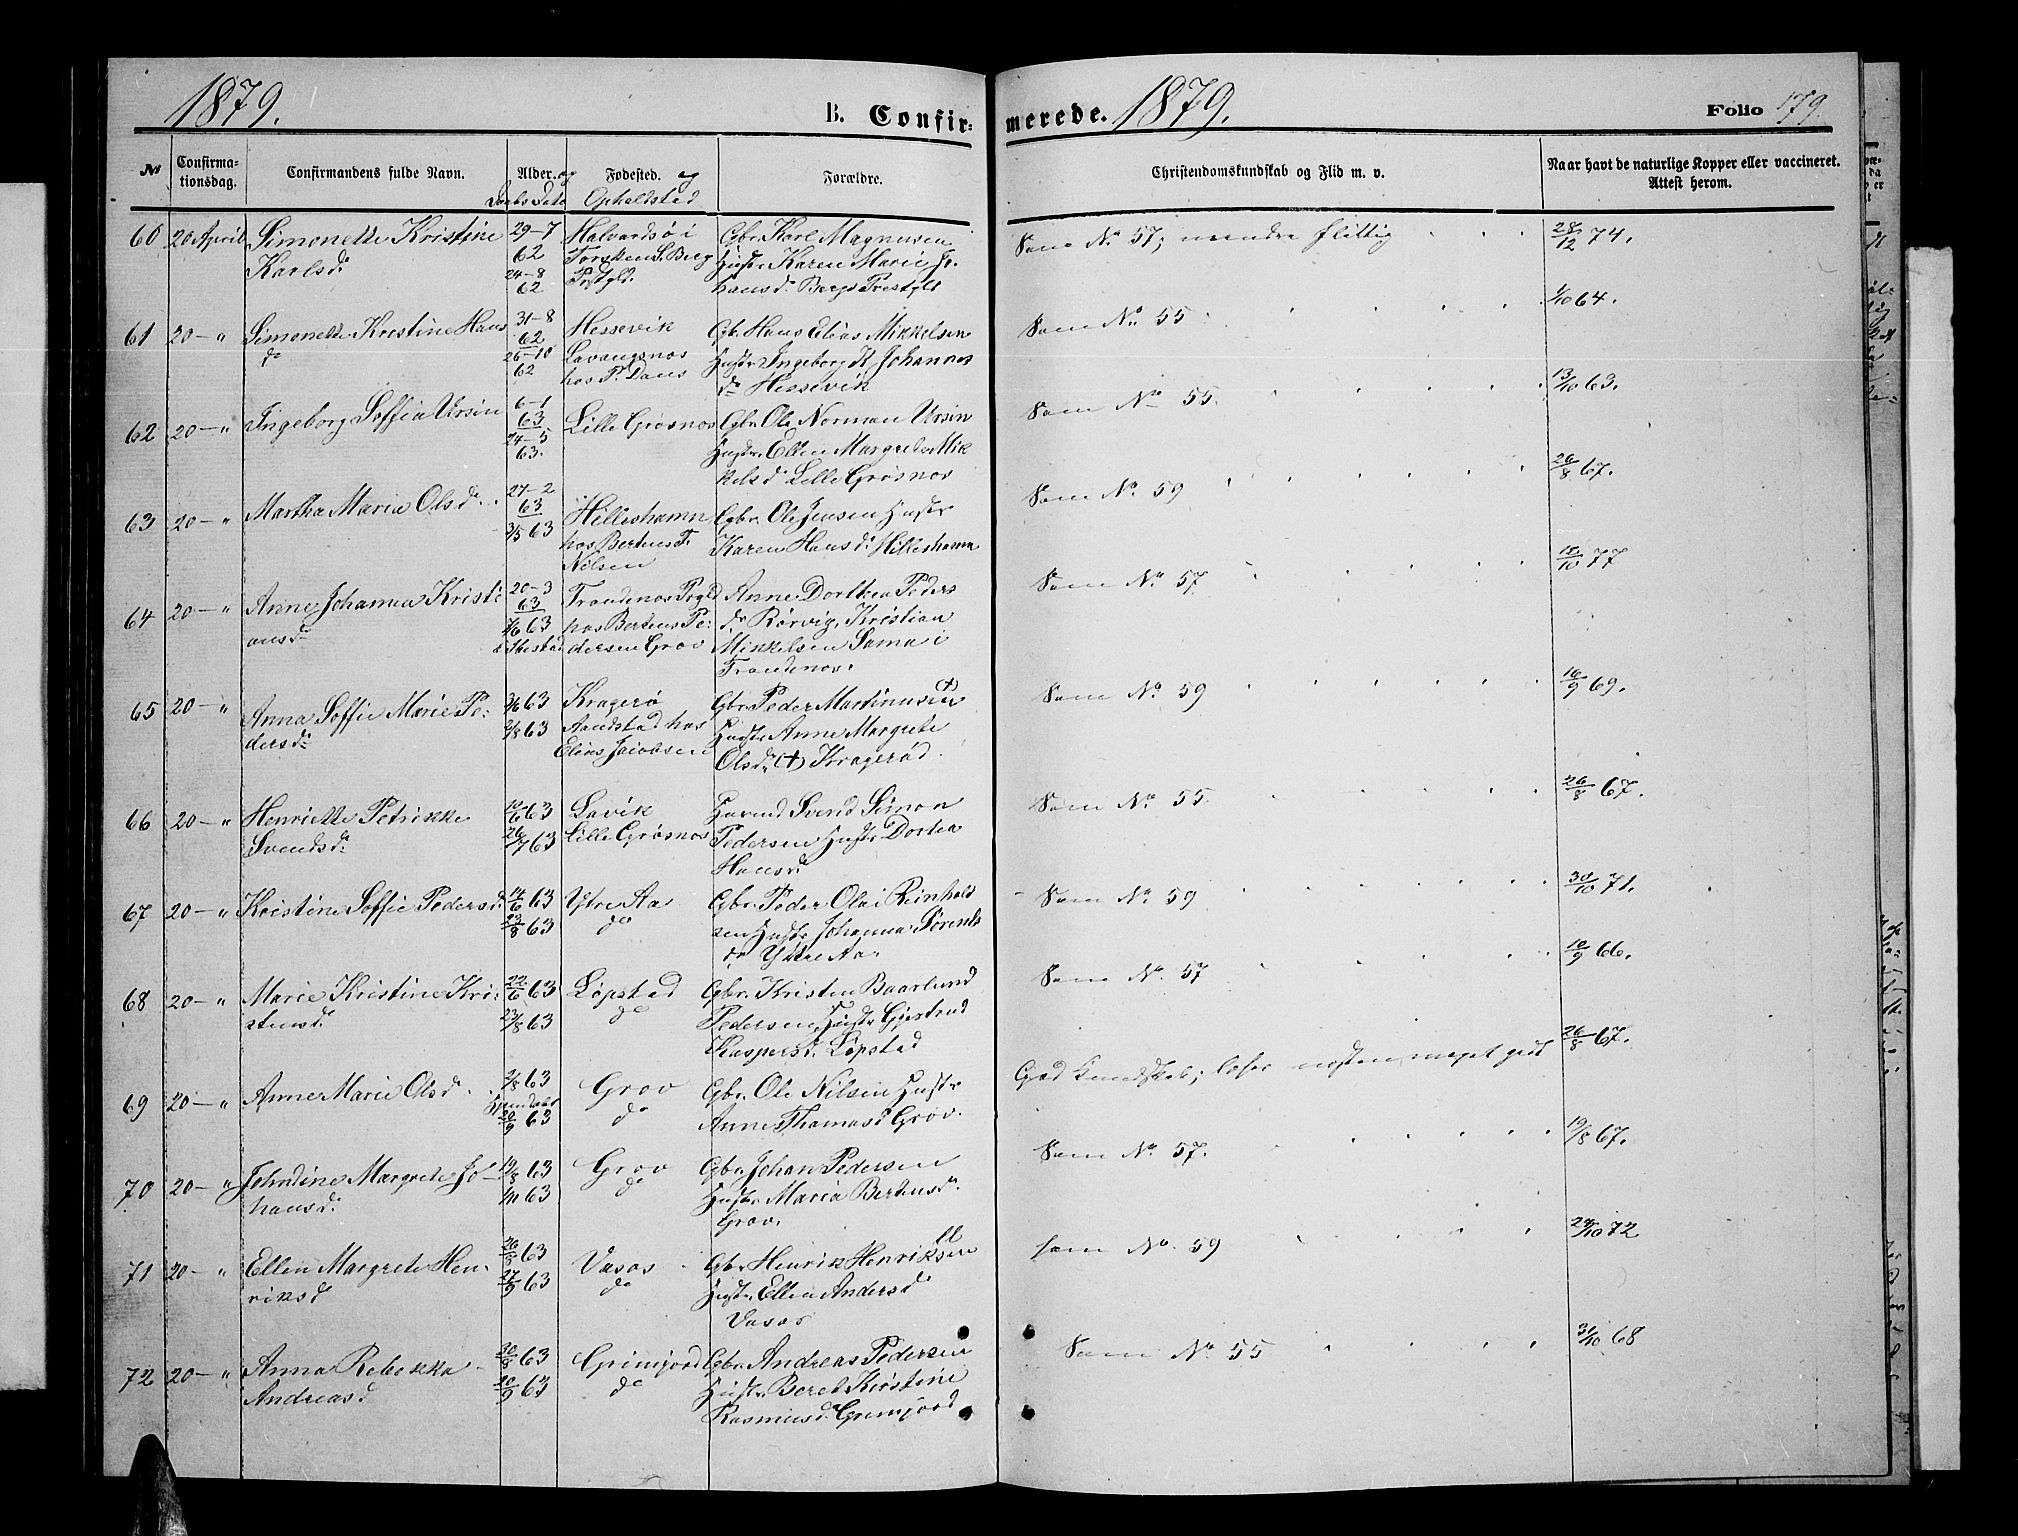 1879.
B. Confir-
merede. 1879.
Folio 179.
№
Confirma-
tionsdag.
Confirmandens fulde Navn.
Alder. og
Daabs Date
Fødested. og
Opholdsted
Forældre.
Christendomskundskab og Flid m. v.
Naar havt de naturlige Kopper eller vaccineret.
Attest herom.
60 20 April Simonette Kristine
Karlsdr
29-7
62
24-8
62
Halvardsø i
Torsken S. Berg
Prstgld.
Gbr. Karl Magnusen
Hustr. Karen Marie Jo-
hansdr. Bergs Prestgld
Som No 57, mindre flittig
28/12 74.
61 20 - " Simonette Kristine Hans
dr
31-8
62
26-10
62
Hessevik
Lavangsnæs
hos P. Dans
Gbr. Hans Elias Mikkelsen
Hustr. Ingeborg K. Johannes
dr Hessevik
Som No 55
1/10 64.
62 20 - " Ingeborg Soffia Ursin
6-1
63
24-5
63.
Lille Grøsnæs
Gbr. Ole Norman Ursin
Hustr. Ellen Margrete Mik
kelsdr Lille Grøsnæs
Som No 55.
13/10 63.
63 20 - " Martha Maria Olsdr.
27-2
63
3/5 63
Hilleshamn
hos Bertens P.
Nilsen
Gbr. Ole Jensen Hustr
Karen Hansdr. Hilleshamn
Som No 59
26/8 67.
64 20 - " Anne Johanna Kristi
ansdr
20-3
63
7/6 63
Trondenæs Prgld
hos Bertens Pe-
dersen Grov
Anne Dorthea Peders
dr Rørvig, Kristian
Mikkelsen Sama i
Trondenæs.
Som No 57
18/10 77
65 20 - " Anna Soffie Marie Pe-
dersdr
3/6 63
2/8 63
Kragerø
Aandstad hos
Elias Jacobsen
Gbr. Peder Martinusen (+)
Hustr. Anne Margrete
Olsdr (+) Kragerød
Som No 59
16/9 69.
66 20 - " Henriette Petrikke
Svendsdr.
12/6 63
26/7 63
Lavik
Lille Grøsnæs
Svend Simon
Pedersen Hustr. Dortea
Hansdr.
Som No. 55.
26/8 67.
67 20 - " Kristine Soffie Pedersdr.
14/6 63
23/8 63
Ytre Aa
do
Gbr. Peder Olai Reinhold
sen Hustr. Johanna Sørens
dr Yttre Aa.
Som No 59
30/10 71.
68 20 - " Marie Kristine Kri-
stensdr.
22/6 63
23/8 63
Løpstad
do
Gbr. Kristen Baarlund
Pedersen, Hustr. Gjertrud
Kaspersdr. Løpstad
Som No. 57
10/9 66.
69 20 - " Anne Marie Olsdr.
2/8 63
20/9 63
Grov
do
Gbr. Ole Nilsen Hustr
Anne Thomasdr Grov.
God Kundskab; læser næsten meget godt
26/8 67.
70 20 - " Johndine Margrete Jo-
hansdr.
19/8 63
1/11 63
Grov
do
Gbr. Johan Pedersen
Hustr. Maria Bertensdr.
Grov.
Som No. 57.
19/8 67.
71 20 - " Ellen Margrete Hen-
riksdr
26/8 63
27/9 63
Vasøs
do
Gbr. Henrik Henriksen
Hustr. Ellen Andersdr
Vasøs
som No. 59
24/10 72
72 20 - " Anna Rebekka
Andreasdr
30/8 63
20/9 63
Grimjord
do
Gbr. Andreas Pedersen
Hustr. Beret Kirstine
Rasmusdr. Grimjord
Som No 55
31/10 68